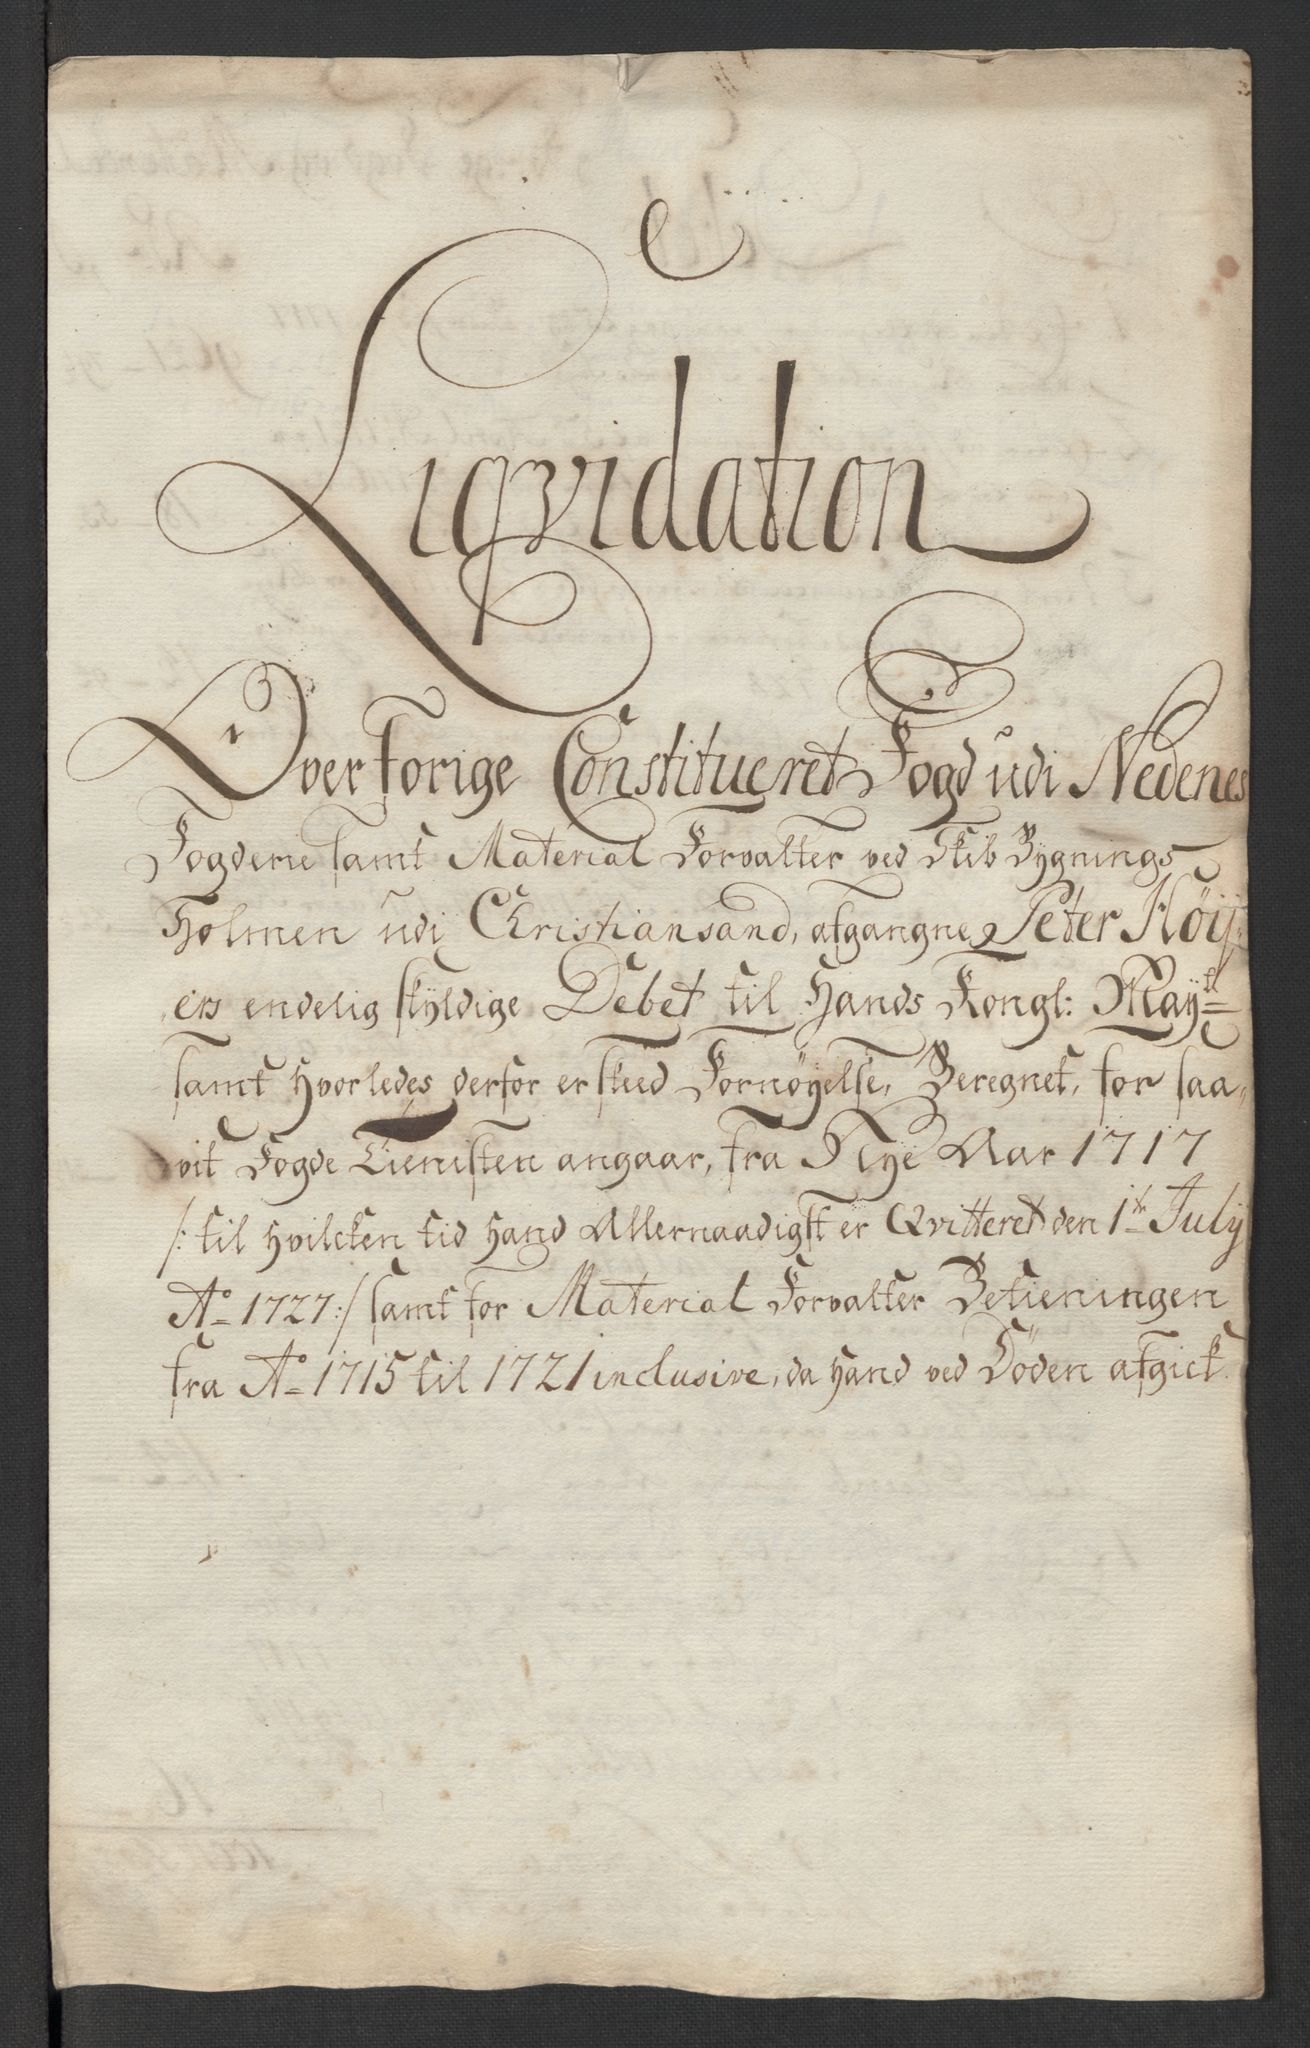 Liqvidation
Over forige Constitueret Fogd udi Nedenes
Fogderie samt Material Forvalter ved Skib Bygnings
Holmen udi Christiansand, afgangne Peter Höij:
ers endelig skyldige Debet til Hands Kongl: Mayts
samt hvorledes derfor er skeed Fornöyelse, Beregnet, for saa,
vit Fogde Tienisten angaar, fra Nye Aar 1717
/: til hvilcken tid hand Allernaadigst er Qvitteret den 1te July
Ao 1727:/ samt for Material Forvalter Betieningen
fra Ao 1715 til 1721 inclusive, da hand ved Döden afgick.